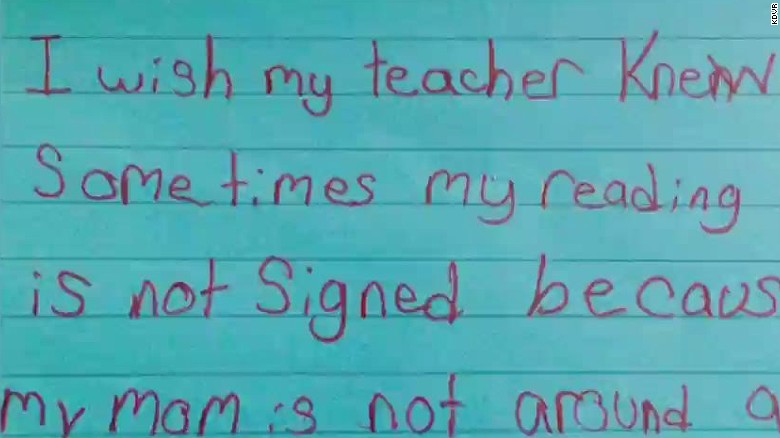 I wish my teacher Knew
Sometimes my reading
is not Signed becaus
my mom is not around a
KDVR